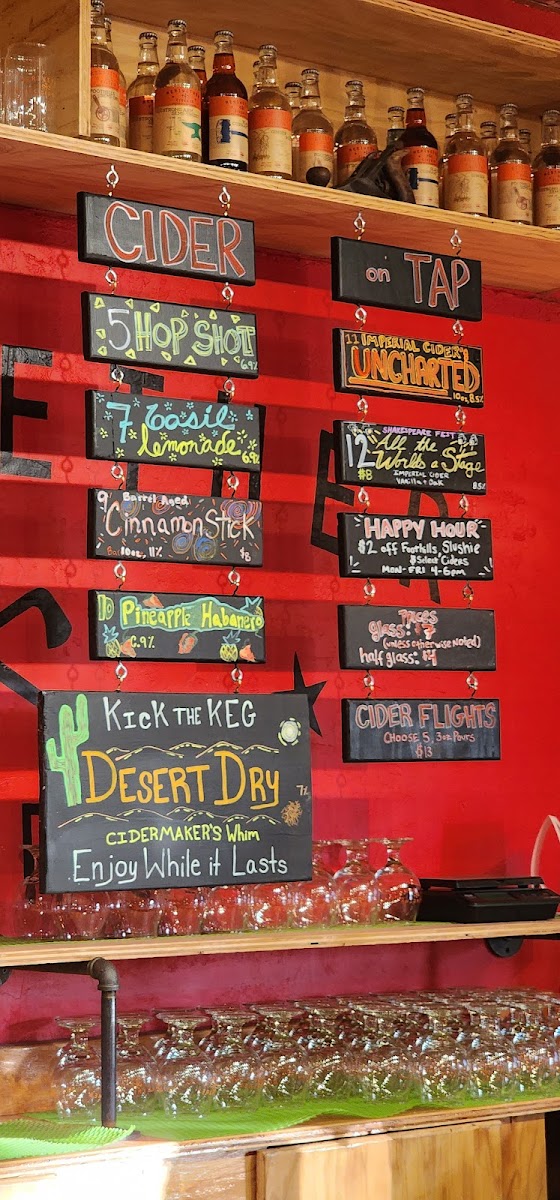 CIDER
5 HOP SHOT
6.9%
7 basil
lemonade
6.9%
9 Barrel Aged
Cinnamon Stick
10oz, 11%
$8
10 Pineapple Habanero
6.9%
KICK THE KEG
DESERT DRY
7%
CIDERMAKER'S Whim
Enjoy While it Lasts
on TAP
11 IMPERIAL CIDER
UNCHARTED
10oz, 8.5%
SHAKESPEARE FEST
12 All the
World's a Stage
$8 IMPERIAL CIDER
Vanilla + Oak 8.5%
HAPPY HOUR
$2 off Foothills, Slushie
& Select Ciders
MON-FRI 4-6pm
PRICES
glass: $7
(unless otherwise NOTED)
half glass: $4
CIDER FLIGHTS
CHOOSE 5, 3oz Pours
$13